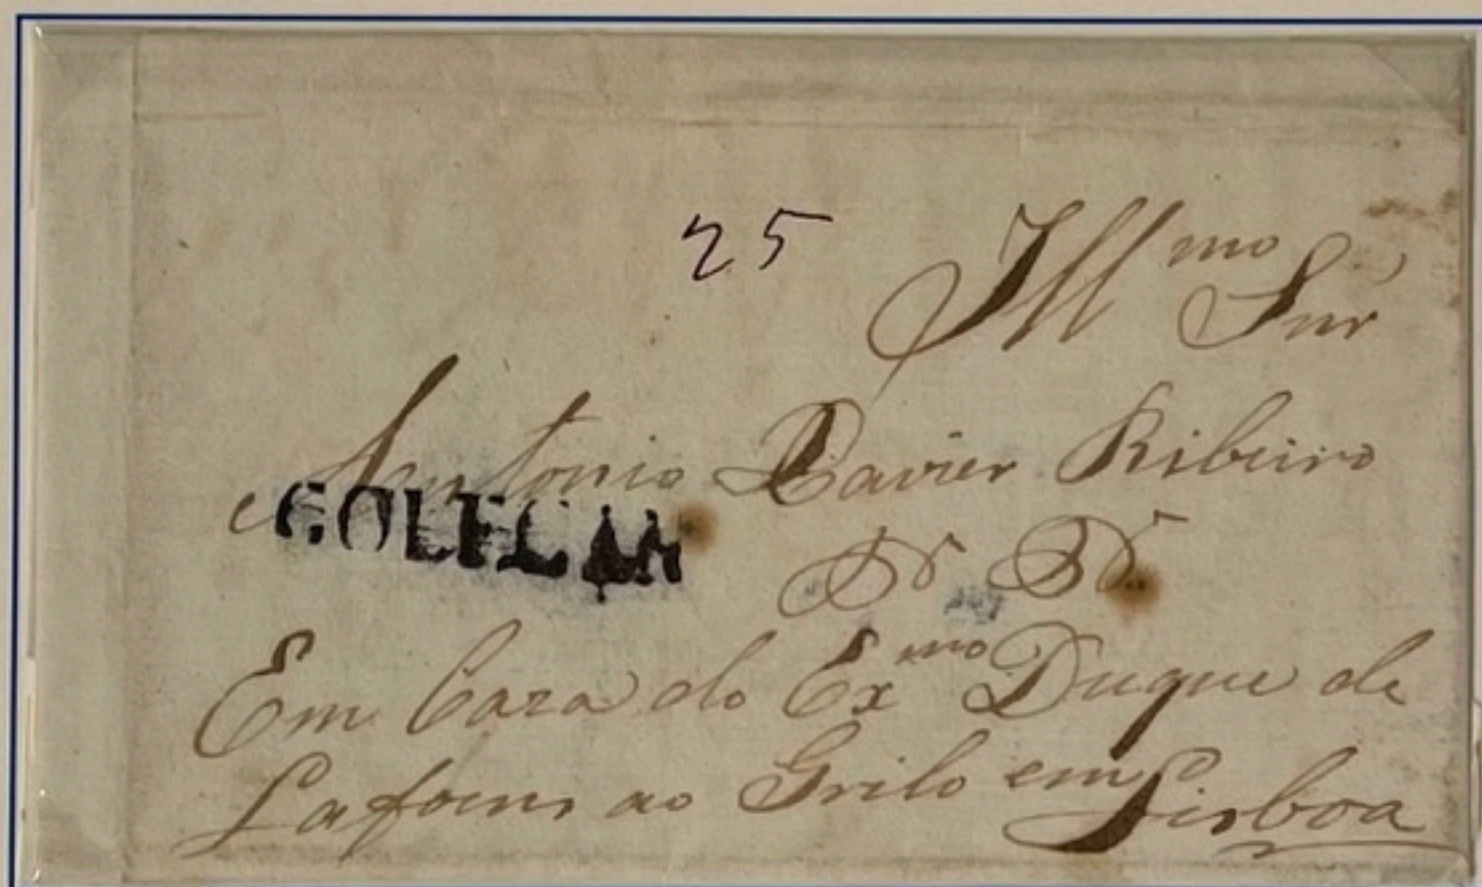 25
Illmo Snr
Antonio Xavier Ribeiro
GOLEGAA
Em Caza do Exmo Duque de
Lafoens ao Grilo em Lisboa